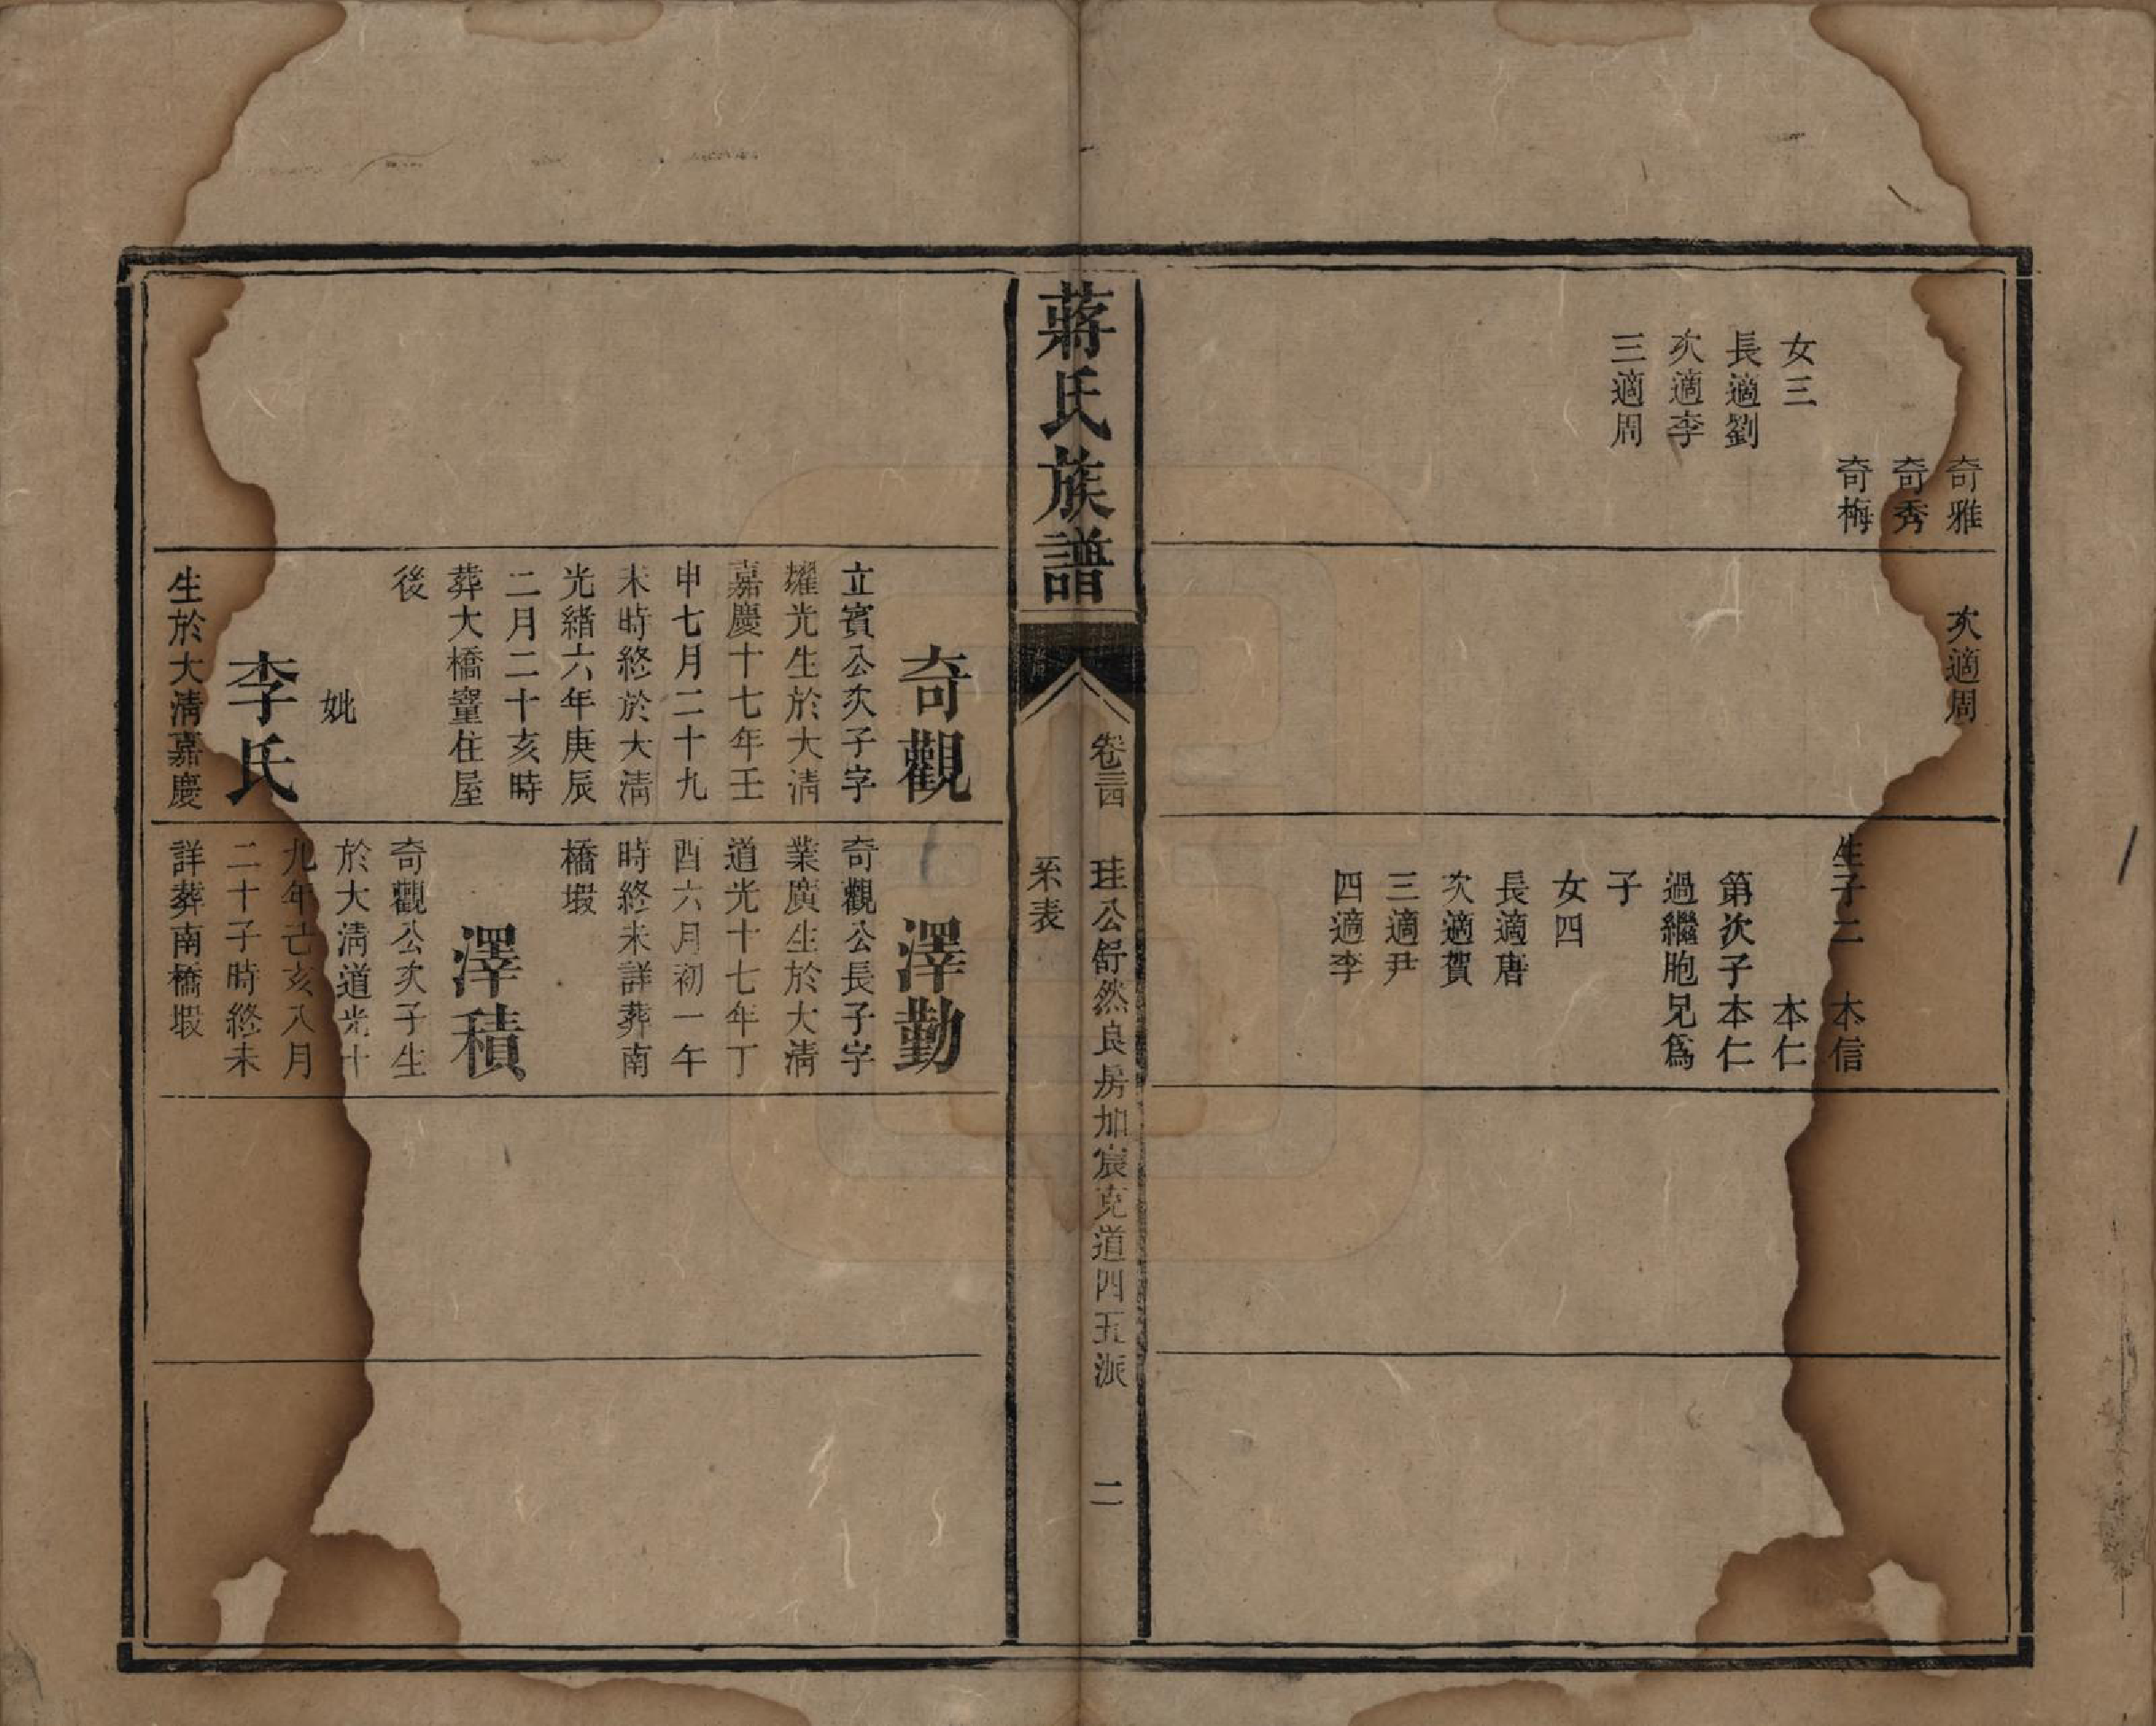 奇雅
奇秀
奇梅
女三
長適劉
次適李
三適周
次適周
生子二 本信
本仁
第次子本仁
過繼胞兄爲
子
女四
長適唐
次適賀
三適尹
四適李
蔣氏族譜
卷三四 珪公舒然良房加宸克道四五派 二
系表
奇觀
立賓公次子字
耀光生於大清
嘉慶十七年壬
申七月二十九
未時終於大清
光緒六年庚辰
二月二十亥時
葬大橋塞住屋
後
妣
李氏
生於大清嘉慶
澤勤
奇觀公長子字
業廣生於大清
道光十七年丁
酉六月初一午
時終未詳葬南
橋塅
澤積
奇觀公次子生
於大清道光十
九年己亥八月
二十子時終未
詳葬南橋塅